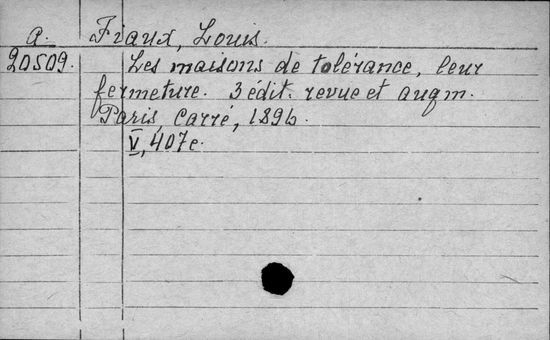 a. Fiaux, Louis.
20509. Les maisons de tolérance, leur
fermeture. 3 édit. revue et augm.
Paris, Carré, 1896.
V, 407 c.